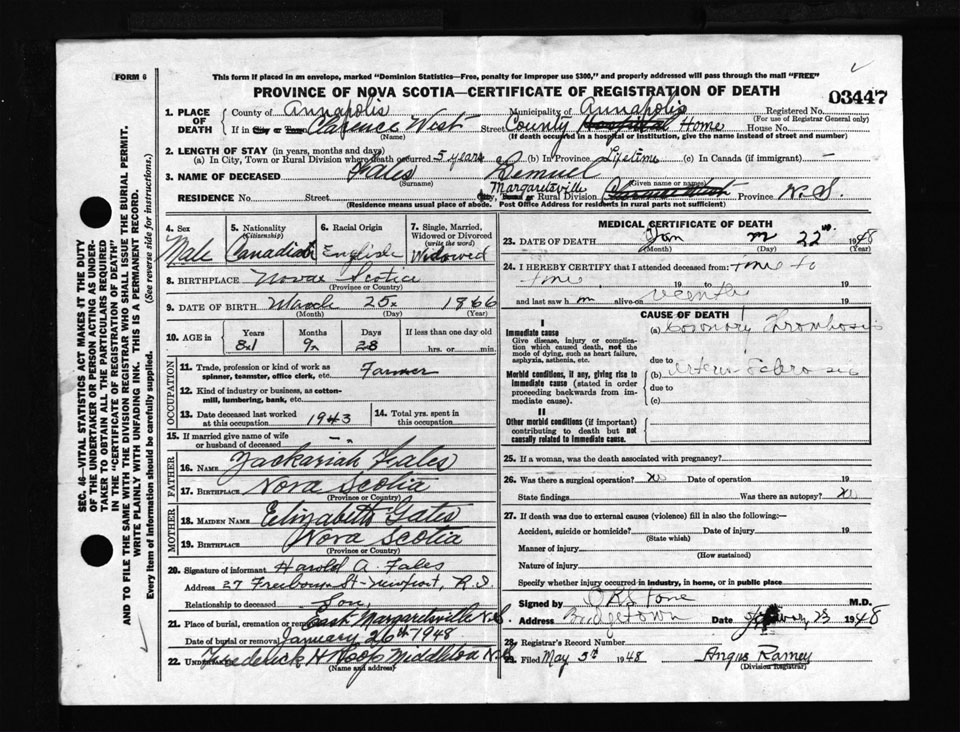 FORM 6
This form if placed in an envelope, marked "Dominion Statistics—Free, penalty for improper use $300," and properly addressed will pass through the mail "FREE"
PROVINCE OF NOVA SCOTIA—CERTIFICATE OF REGISTRATION OF DEATH
03447
1. PLACE OF DEATH
County of Annapolis Municipality of Annapolis Registered No.
(For use of Registrar General only)
If in City or Town Clarence West Street County Hospital Home House No.
(Name) (If death occurred in a hospital or institution, give the name instead of street and number)
2. LENGTH OF STAY (in years, months and days)
(a) In City, Town or Rural Division where death occurred 5 years (b) In Province Lifetime (c) In Canada (if immigrant) —
3. NAME OF DECEASED Fales Lemuel
(Surname) (Given name or names)
RESIDENCE No. Street City, Town or Rural Division Margaretsville Clarence West Province N.S.
(Residence means usual place of abode. Post Office Address for residents in rural parts not sufficient)
4. Sex
Male
5. Nationality
(Citizenship)
Canadian
6. Racial Origin
English
7. Single, Married, Widowed or Divorced
(write the word)
Widowed
8. BIRTHPLACE Nova Scotia
(Province or Country)
9. DATE OF BIRTH March 25 1866
(Month) (Day) (Year)
10. AGE in
Years Months Days If less than one day old
81 9 28 hrs. or min.
OCCUPATION
11. Trade, profession or kind of work as spinner, teamster, office clerk, etc. Farmer
12. Kind of industry or business, as cotton-mill, lumbering, bank, etc.
13. Date deceased last worked at this occupation 1943
14. Total yrs. spent in this occupation
15. If married give name of wife or husband of deceased —
FATHER
16. NAME Zackariah Fales
17. BIRTHPLACE Nova Scotia
(Province or Country)
MOTHER
18. MAIDEN NAME Elizabeth Gates
19. BIRTHPLACE Nova Scotia
(Province or Country)
20. Signature of informant Harold A. Fales
Address 27 Freeborn St - Newport, R.I.
Relationship to deceased Son,
21. Place of burial, cremation or removal East Margaretsville N.S.
Date of burial or removal January 26th 1948
22. UNDERTAKER Frederick H Middleton N.S.
(Name and address)
MEDICAL CERTIFICATE OF DEATH
23. DATE OF DEATH Jan 22nd 1948
(Month) (Day) (Year)
24. I HEREBY CERTIFY that I attended deceased from: time to
time 19 to 19
and last saw h m alive on recently 19
CAUSE OF DEATH
I
Immediate cause
Give disease, injury or complication which caused death, not the mode of dying, such as heart failure, asphyxia, asthenia, etc.
(a) Coronary Thrombosis
due to
Morbid conditions, if any, giving rise to immediate cause (stated in order proceeding backwards from immediate cause).
(b) Arterio Sclerosis
due to
(c)
II
Other morbid conditions (if important) contributing to death but not causally related to immediate cause.
25. If a woman, was the death associated with pregnancy?
26. Was there a surgical operation? No Date of operation 19
State findings Was there an autopsy? No
27. If death was due to external causes (violence) fill in also the following:—
Accident, suicide or homicide? Date of injury 19
(State which)
Manner of injury
(How sustained)
Nature of injury
Specify whether injury occurred in industry, in home, or in public place
Signed by Stone M.D.
Address Bridgetown Date 23 1948
28. Registrar's Record Number
29. Filed May 3rd 1948 Angus Ramey
(Division Registrar)
SEC. 46—VITAL STATISTICS ACT MAKES IT THE DUTY
OF THE UNDERTAKER OR PERSON ACTING AS UNDER-
TAKER TO OBTAIN ALL THE PARTICULARS REQUIRED
IN THE "CERTIFICATE OF REGISTRATION OF DEATH"
AND TO FILE THE SAME WITH THE DIVISION REGISTRAR WHO SHALL ISSUE THE BURIAL PERMIT.
WRITE PLAINLY WITH UNFADING INK. THIS IS A PERMANENT RECORD.
Every item of information should be carefully supplied. (See reverse side for instructions.)